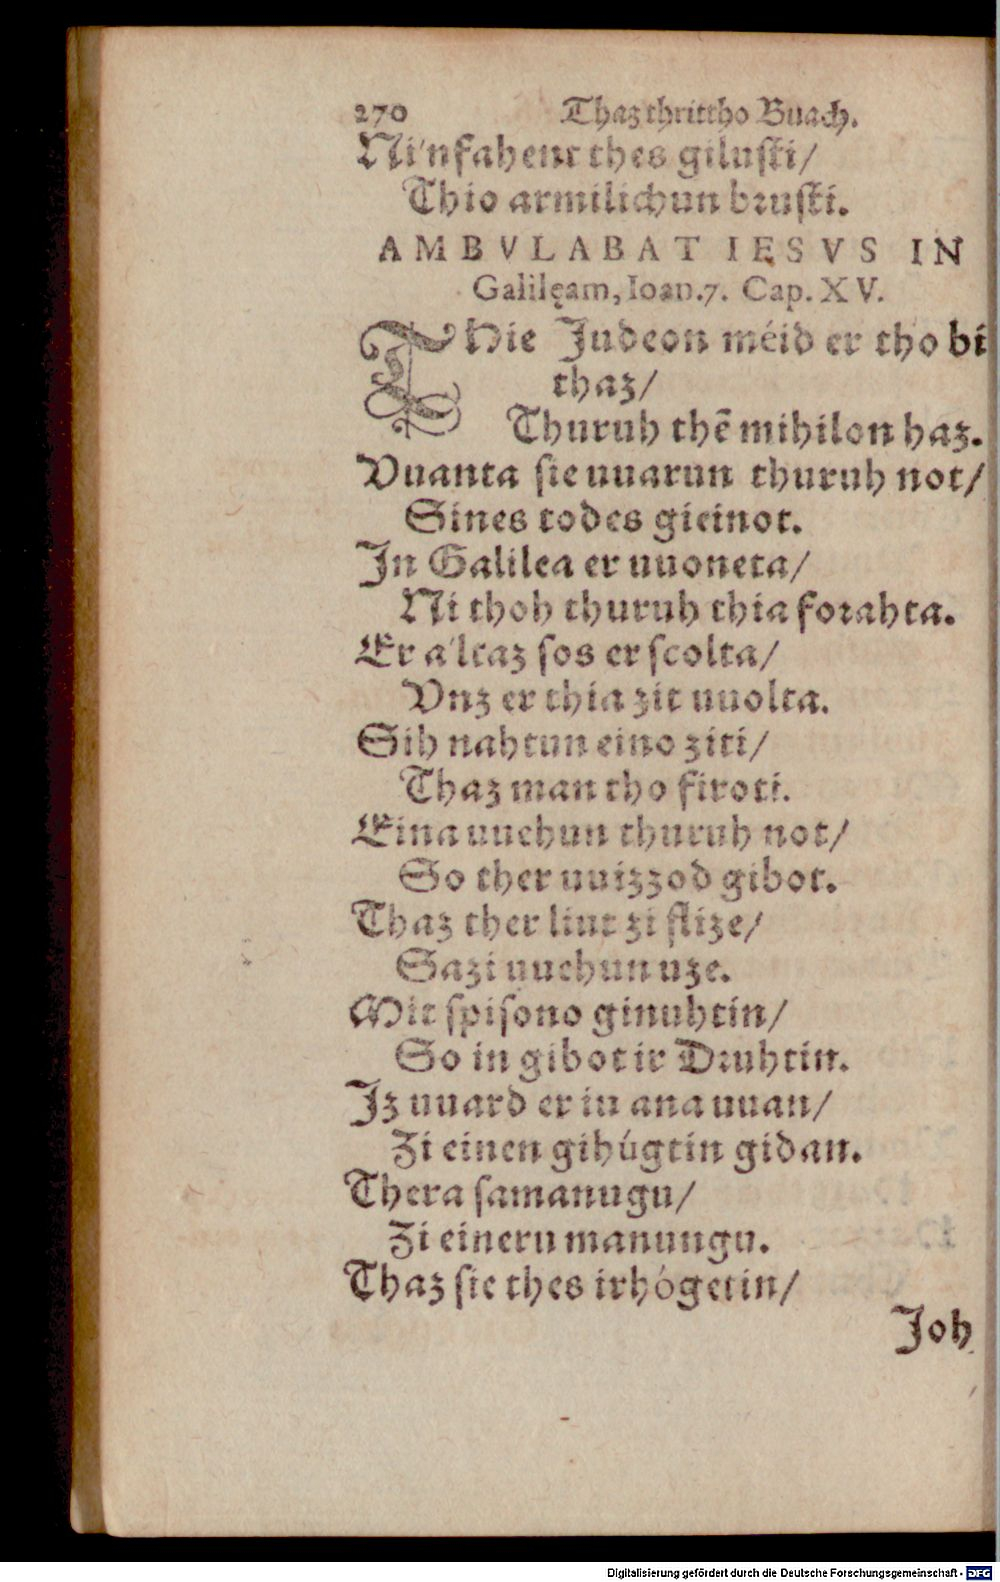 270 Thaz thrittho Buach.
Ni'nfahent thes giluſti/
Thio armilichun bꝛuſti.
AMBVLABAT IESVS IN
Galilęam, Ioan.7. Cap. XV.
THie Judeon méid er tho bi
thaz/
Thuruh thē mihilon haz.
Vuanta ſie uuarun thuruh not/
Sines todes gieinot.
In Galilea er uuoneta/
Ni thoh thuruh thia foꝛahta.
Er a'ltaz ſos er ſcolta/
Vnz er thia zit uuolta.
Sih nahtun eino ziti/
Thaz man tho firoti.
Eina uuehun thuruh not/
So ther uuizzod gibot.
Thaz ther liut zi flize/
Sazi uuehun uze.
Mit ſpiſono ginuhtin/
So in gibot ir Dꝛuhtin.
Iz uuard er iu ana uuan/
Zi einen gihúgtin gidan.
Thera ſamanugu/
Zi eineru manungu.
Thaz ſie thes irhógetin/
Joh
Digitalisierung gefördert durch die Deutsche Forschungsgemeinschaft - DFG